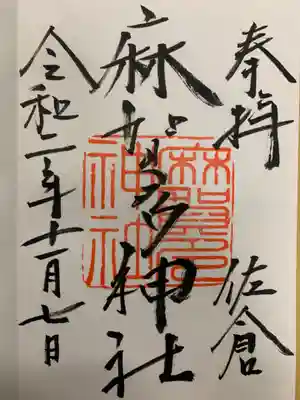 奉拝
佐倉
麻賀多神社
令和二年十一月七日
麻賀多
神社